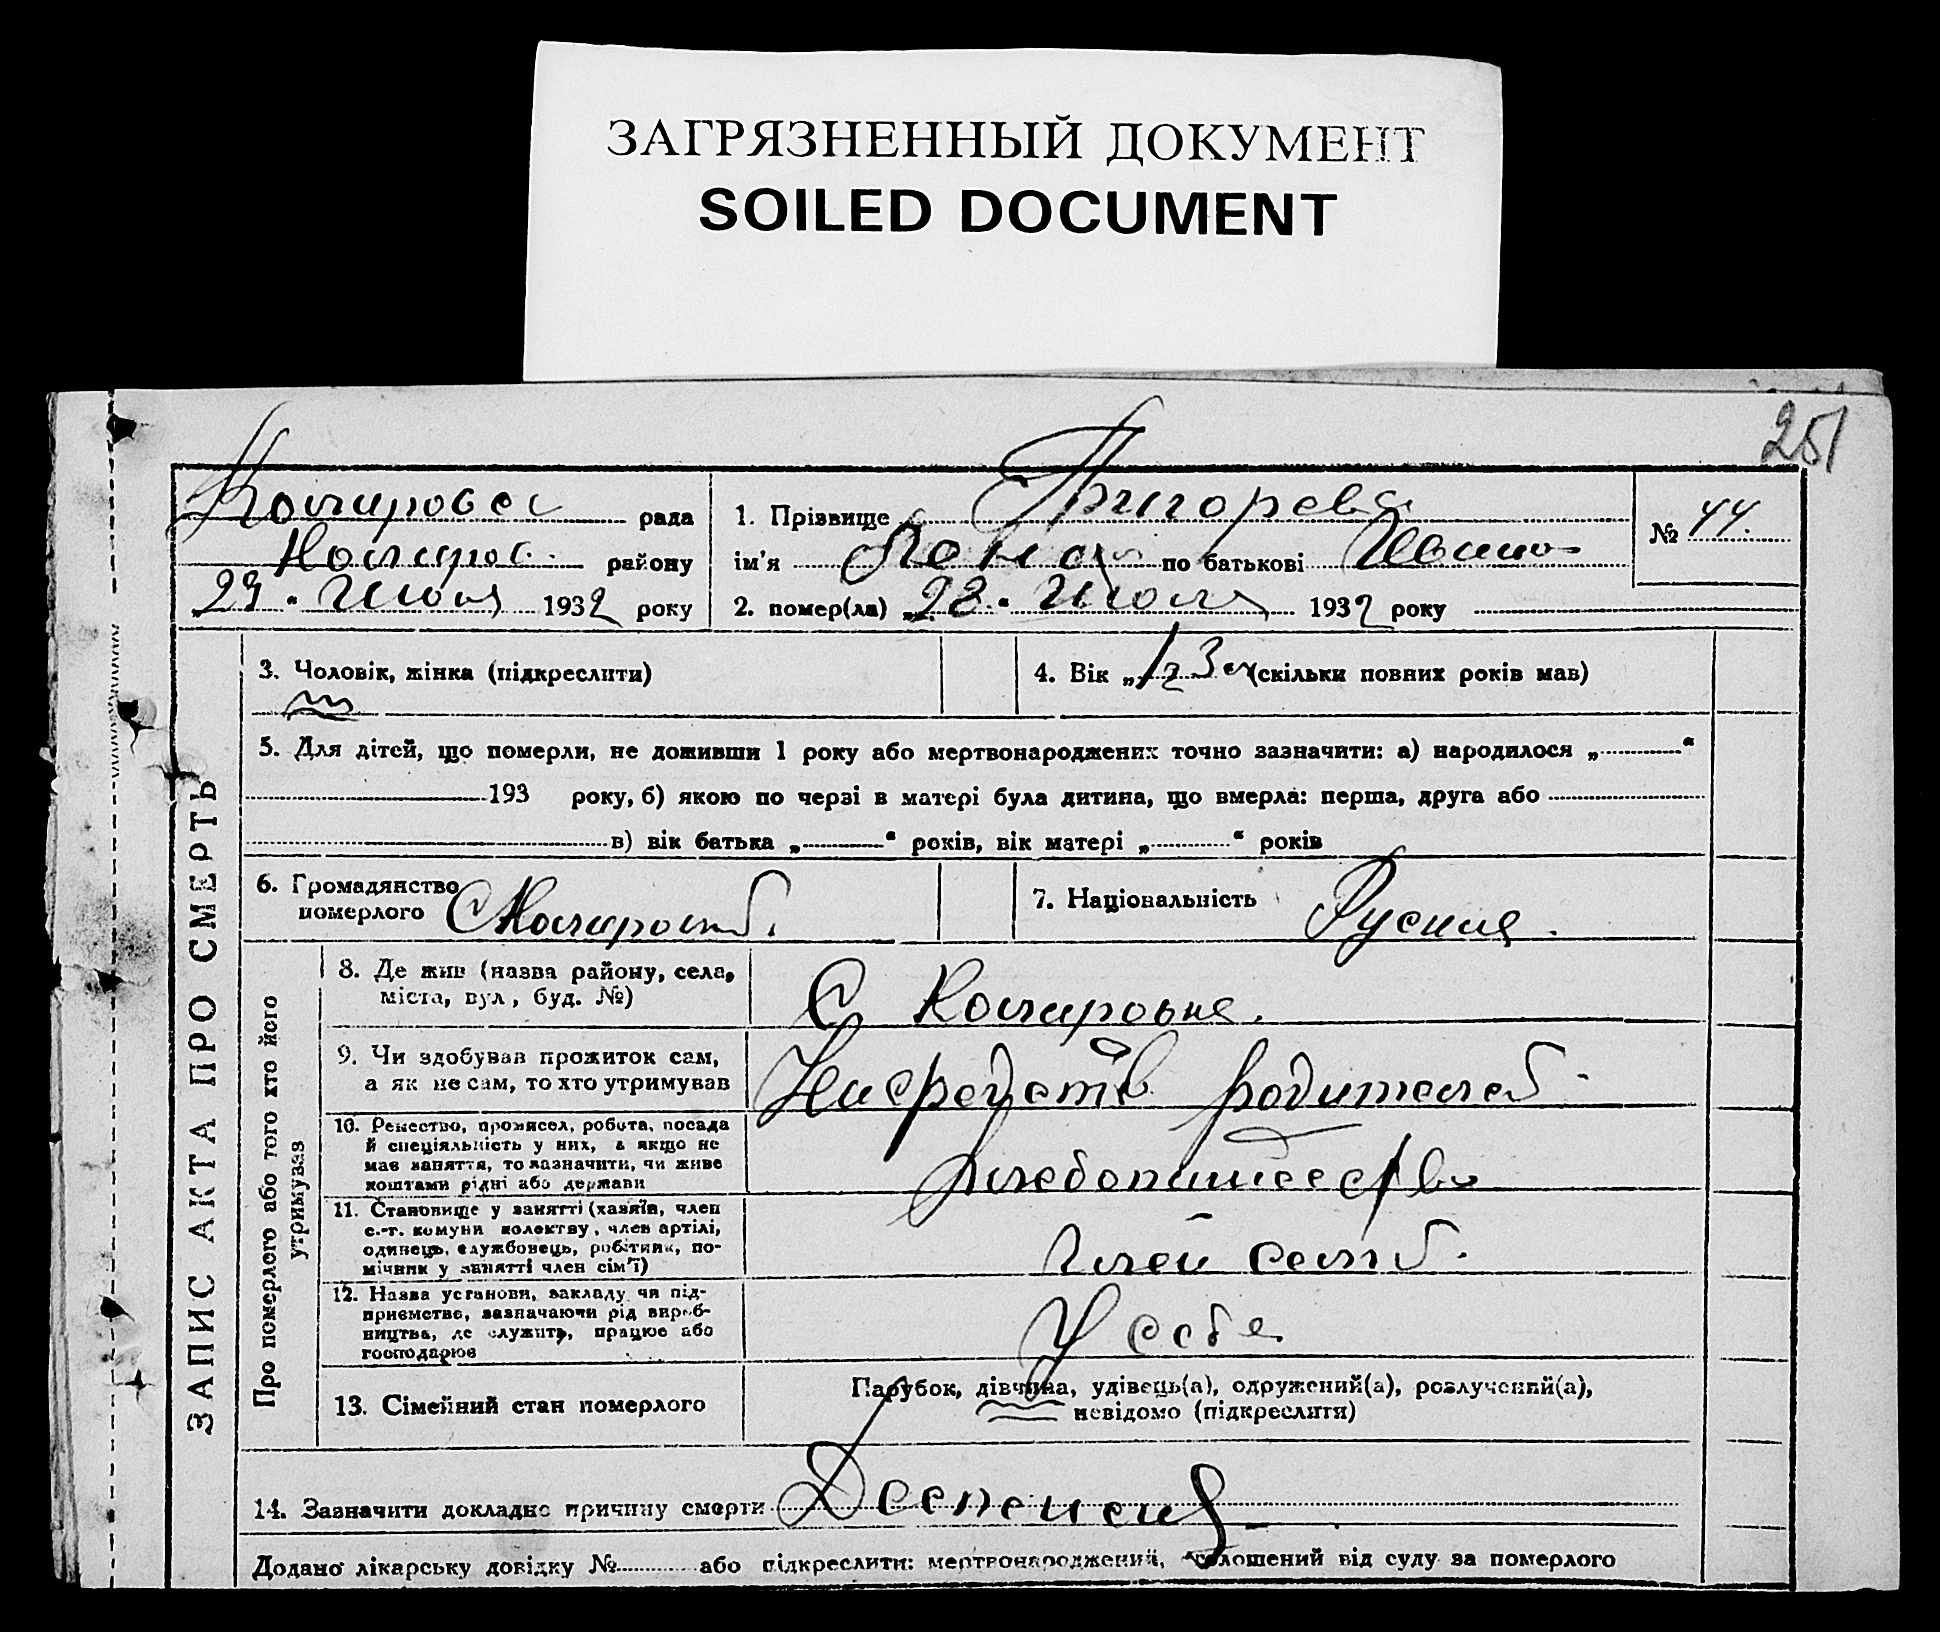 ЗАГРЯЗНЕННЫЙ ДОКУМЕНТ
SOILED DOCUMENT
251
рада
району
29 " Июля 1932 року
1. Прізвище Григорева
ім'я по батькові Ивано
№ 44.
2. помер(ла) „28." Июля 1932 року
ЗАПИС АКТА ПРО СМЕРТЬ
3. Чоловік, жінка (підкреслити)
4. Вік „ (скільки повних років мав)
5. Для дітей, що померли, не доживши 1 року або мертвонароджених точно зазначити: а) народилося „ “
193 року, б) якою по черзі в матері була дитина, що вмерла: перша, друга або
в) вік батька „ “ років, вік матері „ “ років
6. Громадянство
померлого
7. Національність Руския.
Про померлого або того хто його
утримував
8. Де жив (назва району, села,
міста, вул, буд. №)
С
9. Чи здобував прожиток сам,
а як не сам, то хто утримував
На средств родителей
10. Ремество, промисел, робота, посада
й спеціяльність у них, а якщо не
має заняття, то зазначити, чи живе
коштами рідні або держави
хлебопашество
11. Становище у занятті (хазяїн, член
с.-г. комуни колектву, член артілі,
одинець, службовець, робітник, по-
мічник у занятті член сім'ї)
член семі
12. Назва установи, закладу чи під-
приємства, зазначаючи рід вироб-
ництва, де служить, працює або
господарює
У себе
13. Сімейний стан померлого
Парубок, дівчина, удівець(а), одружений(а), розлучений(а),
невідомо (підкреслити)
14. Зазначити докладно причину смерти
Додано лікарську довідку № або підкреслити: мертвонароджений, оголошений від суду за померлого